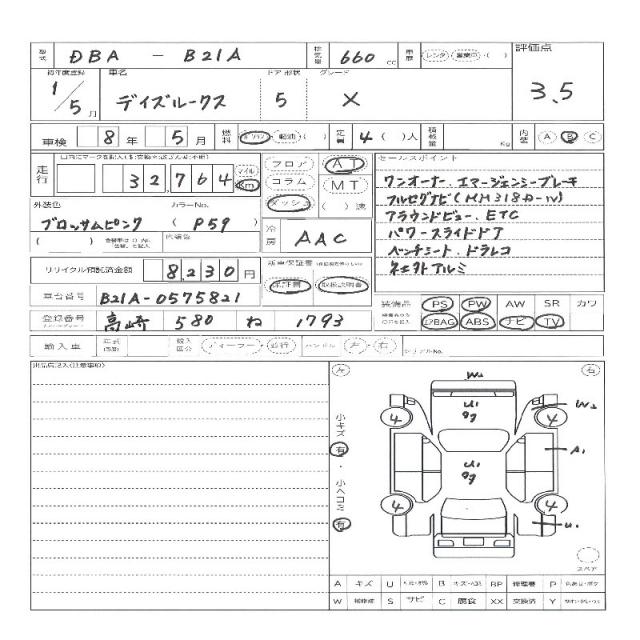 型式 DBA - B21A 排気量 660 cc 車歴 レンタ・営業中・( ) 評価点
初年度登録 車名 ドア 形状 グレード
1/5月 デイズルークス 5 X 3.5
車検 8年 5月 燃料 ガソリン・軽油・( ) 定員 4( )人 積載 Kg 内装 A B C
走行 32,764 マイル Km フロア AT セールスポイント
コラム MT ワンオーナー.エマージェンシーブレーキ
外装色 カラーNo. ダッシュ ( )速 フルセグナビ(MM318D-W)
ブロッサムピンク (P59) 冷房 AAC アラウンドビュー.ETC
( ) 内装色 パワースライドドア
リサイクル預託済金額 8,230円 新車保証書 ベンチシート.ドラレコ
保証書 取扱説明書 社外アルミ
車台番号 B21A-0575821 装備品 PS PW AW SR カワ
登録番号 高崎 580 ね 1793 エアBAG ABS ナビ TV
輸入車 年式 輸入区分 ディーラー・並行 ハンドル 左・右 シリアルNo.
出品店記入(注意事項) 左 右
W2
U1 W2
99
4 4
小キズ 有・小ヘコミ 有
A1
U1
99
4 4
U1
スペア
A キズ U B BP 修理機 P
W S サビ C 腐食 XX 交換済 Y